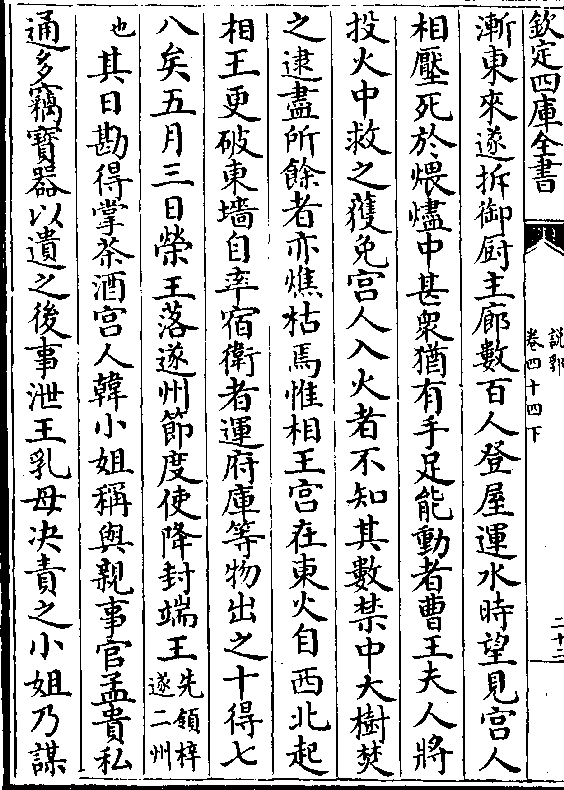 欽定四庫全書
說郛
卷四十四下
二十二
漸東來遂拆御厨主廊數百人登屋運水時望見宫人
相壓死於煨燼中甚衆猶有手足能動者曹王夫人將
投火中救之獲免宫人入火者不知其數禁中大樹焚
之逮盡所餘者亦燋枯焉惟相王宫在東火自西北起
相王更破東墻自率宿衛者運府庫等物出之十得七
八矣五月三日榮王落遂州節度使降封端王先領梓遂二州
也其日勘得掌茶酒宫人韓小姐稱與親事官孟貴私
通多竊寳器以遺之後事泄王乳母决責之小姐乃謀